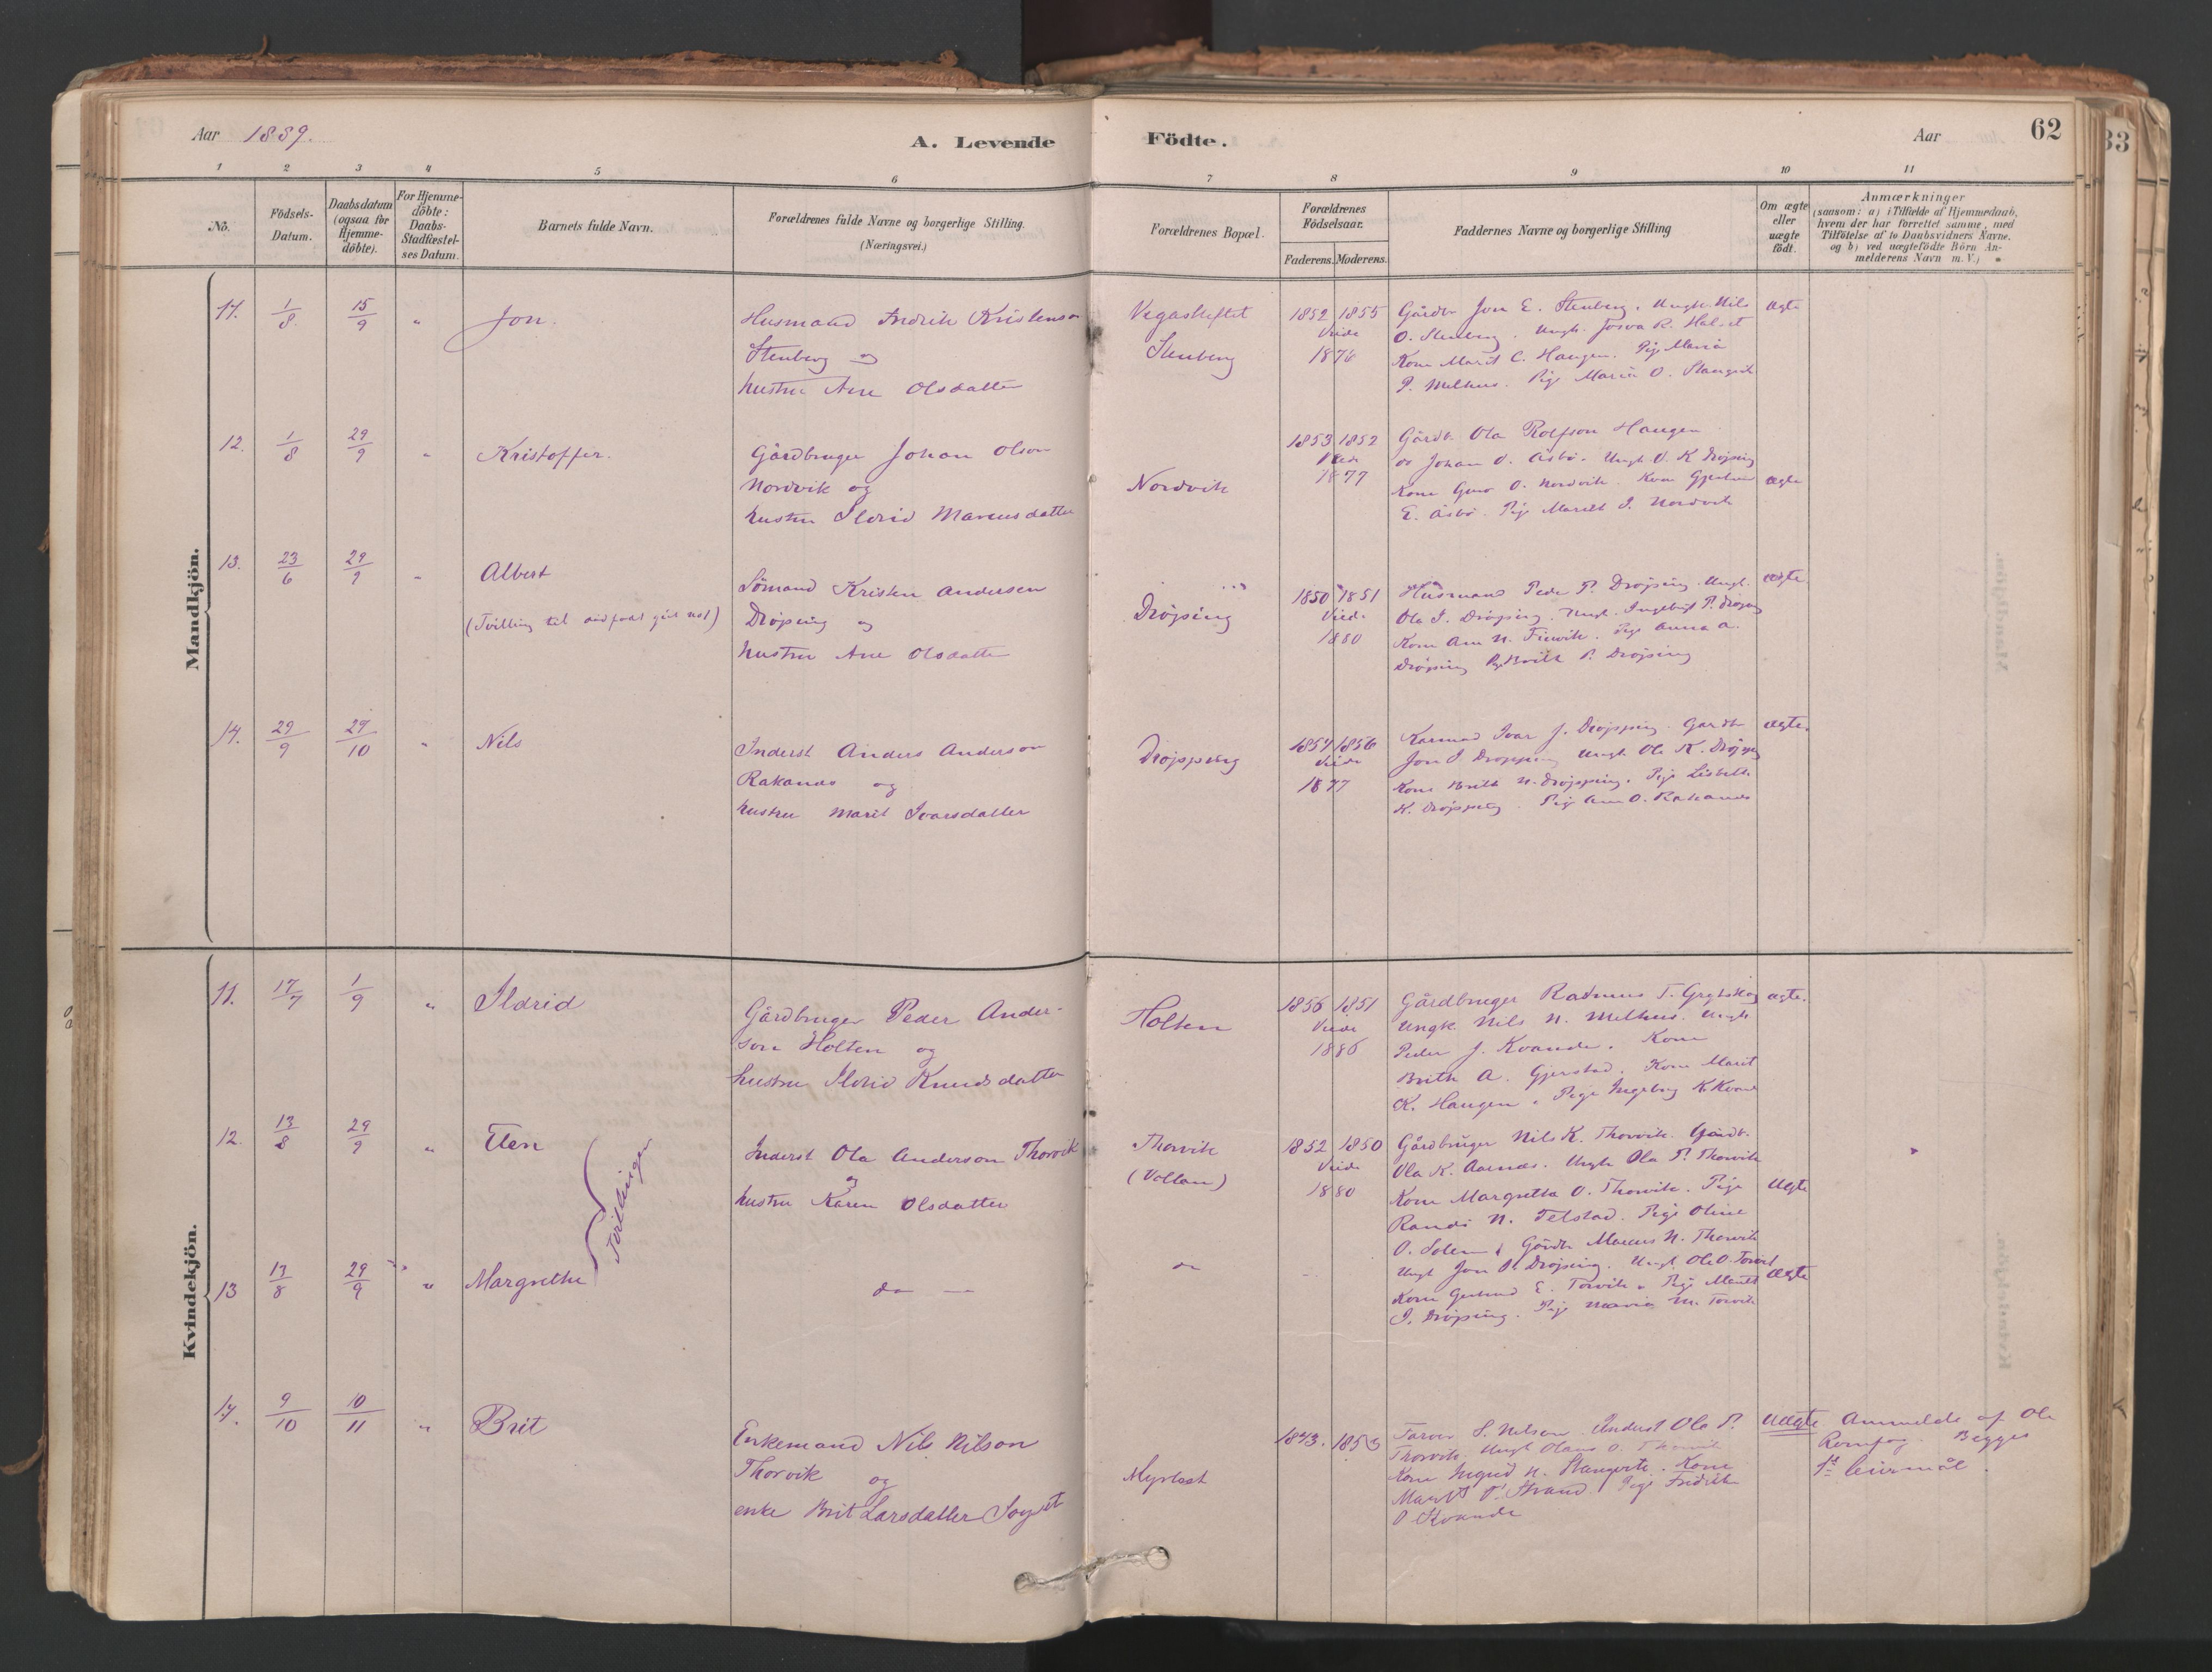 Aar 1889.
A. Levende Födte.
Aar
62
33
1 2 3 4 5 6 7 8 9 10 11
No.
Födsels-Datum.
Daabsdatum (ogsaa for Hjemme-döbte).
For Hjemme-döbte: Daabs-Stadfæstel-ses Datum.
Barnets fulde Navn.
Forældrenes fulde Navne og borgerlige Stilling. (Næringsvei.)
Forældrenes Bopæl.
Forældrenes Födselsaar.
Faderens. Moderens.
Faddernes Navne og borgerlige Stilling
Om ægte eller uægte födt.
Anmærkninger
(saasom: a) i Tilfælde af Hjemmedaab,
hvem der har forrettet samme, med
Tilföielse af to Daabsvidners Navne,
og b) ved uægtefödte Börn An-
melderens Navn m. V.)
Mandkjön.
11. 1/8. 15/9 " Jon.
Husmand Fredrik Kristenson
Stenberg og
hustru Ane Olsdatter
Stenberg
1852 1855
Viede
1876
Gårdbr. Jon E. Stenberg. Ungk. Nils
O. Stenberg. Ungk. Josva R. Halset
Kone Marit C. Haugen. Pige Maria
P. Melhus. Pige Maria O. Stangvik
ægte
12. 1/8 29/9 " Kristoffer.
Gårdbruger Johan Olson
Nordvik og
hustru Ildrid Marcusdatter
Nordvik
1853 1852
Viede
1877
Gårdb. Ola Rolfson Haugen
do Johan O. Åsbö. Ungk. O. K. Dröpping
Kone Guro O. Nordvik. Kone
E. Åsbö. Pige Marit I. Nordvik
ægte
13. 23/6 29/9 " Albert
(Tvilling til
Sömand Kristen Andersen
Dröpping og
hustru Ane Olsdatter
Dröpping
1850 1851
Viede
1880
Husmand Peder P. Dröpping. Ungk.
Ola I. Dröpping. Ungk. Ingebrigt P. Dröpping
Kone Ane N. . Pige Anna A.
Dröpping Pige Brit P. Dröpping
ægte.
14. 29/9 27/10 " Nils
Inderst Anders Anderson
Rakanes og
hustru Marit Ivarsdatter
Dröpping
1857 1856
Viede
1877
Ivar J. Dröpping. Gardb.
Jon I Dröpping Ungk. Ola K. Dröpping
Kone Brit N. Dröpping. Pige Lisbet
K. Dröpping. Pige Ane O. Rakanes
ægte.
Kvindekjön.
11. 17/7 1/9 " Ildrid
Gårdbruger Peder Ander-
son Holten og
hustru Ildrid Knudsdatter
Holten
1856 1851
Viede
1886
Gårdbruger Rasmus T.
Ungk Nils N. Melhus. Ungk
Peder J. Kvande. Kone
Brith A. Gjerstad. Kone Marit
K. Haugen. Pige Ingeborg K. Kvande
ægte.
12. 13/8 29/9 " Elen
Tvillinger
Inderst Ola Anderson Thorvik
og
hustru Karen Olsdatter
Thorvik
(Vollan)
1852 1850
Viede
1880
Gårdbruger Nils K. Thorvik. Gårdb.
Ola K. Aarnes. Ungk Ola P. Thorvik
Kone Margretha O. Thorvik. Pige
Randi N. Telstad. Pige Oline
O. Solem
ægte
13 13/8 29/9 " Margrethe
do
do
Gårdb. Marcus N. Thorvik
Ungk Jon P. Dröpping. Ungk Ole O. Torvik
Kone Gertrud E. Torvik. Pige Marit
I. Dröpping. Pige Maria M. Torvik
ægte
14. 9/10 10/11 " Brit
Enkemand Nils Nilson
Thorvik og
enke Brit Larsdatter
1843. 1853
S. Nelson. Inderst Ola P.
Thorvik. Ungk Olaus O. Thorvik
Kone Ingrid N. Stangvik. Kone
Marit P. Strand. Pige Fredrikke
O Kvande
uægte
Anmeldt af Ole
Begges
1st leiermål.